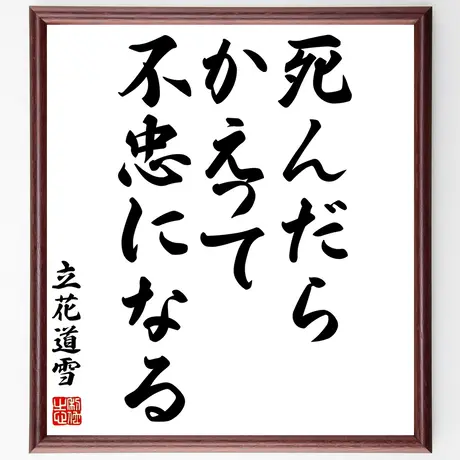 死んだら
かえって
不忠になる
立花道雪